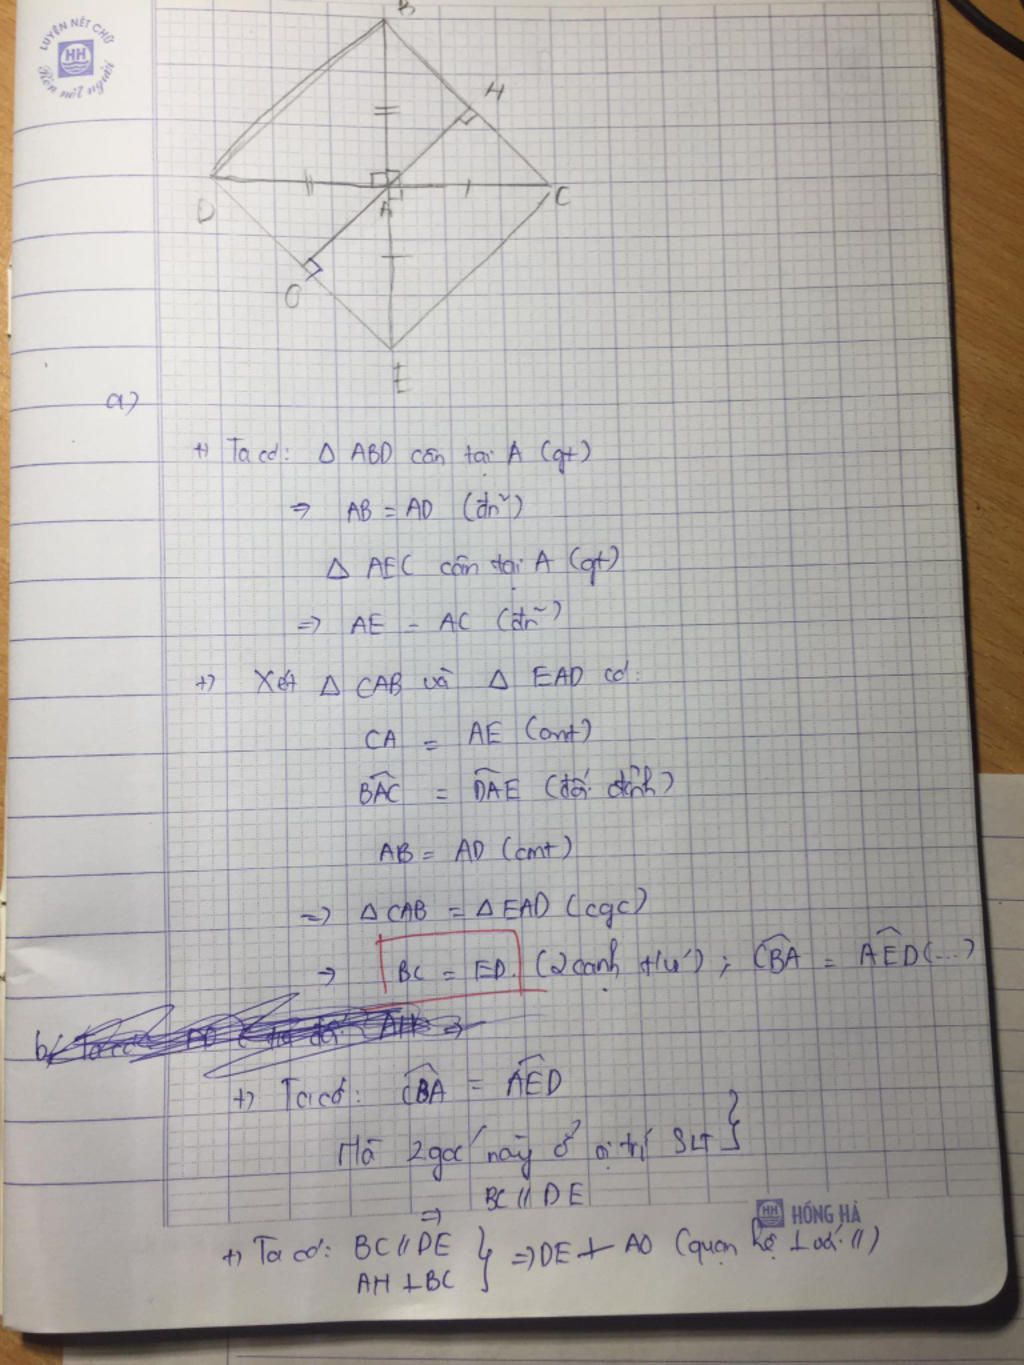 LUYỆN NÉT CHỮ
HH
Rèn nết người
B
H
D
A
C
O
E
a)
+) Ta có: Δ ABD cân tại A (gt)
⇒ AB = AD (đn)
Δ AEC cân tại A (gt)
⇒ AE = AC (đn)
+) Xét Δ CAB và Δ EAD có:
CA = AE (cmt)
BAC = DAE (đối đỉnh)
AB = AD (cmt)
⇒ Δ CAB = Δ EAD (cgc)
⇒ BC = ED. (2 cạnh t/ứ); CBA = AED (...)
b/
+) Ta có: CBA = AED
Mà 2 góc này ở vị trí SLT }
⇒ BC // DE
HH HỒNG HÀ
+) Ta có: BC // DE
AH ⊥ BC } ⇒ DE ⊥ AO (quan hệ ⊥ với //)